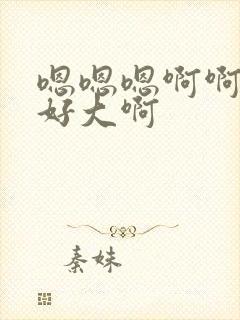 嗯嗯嗯啊啊
好大啊
秦妹